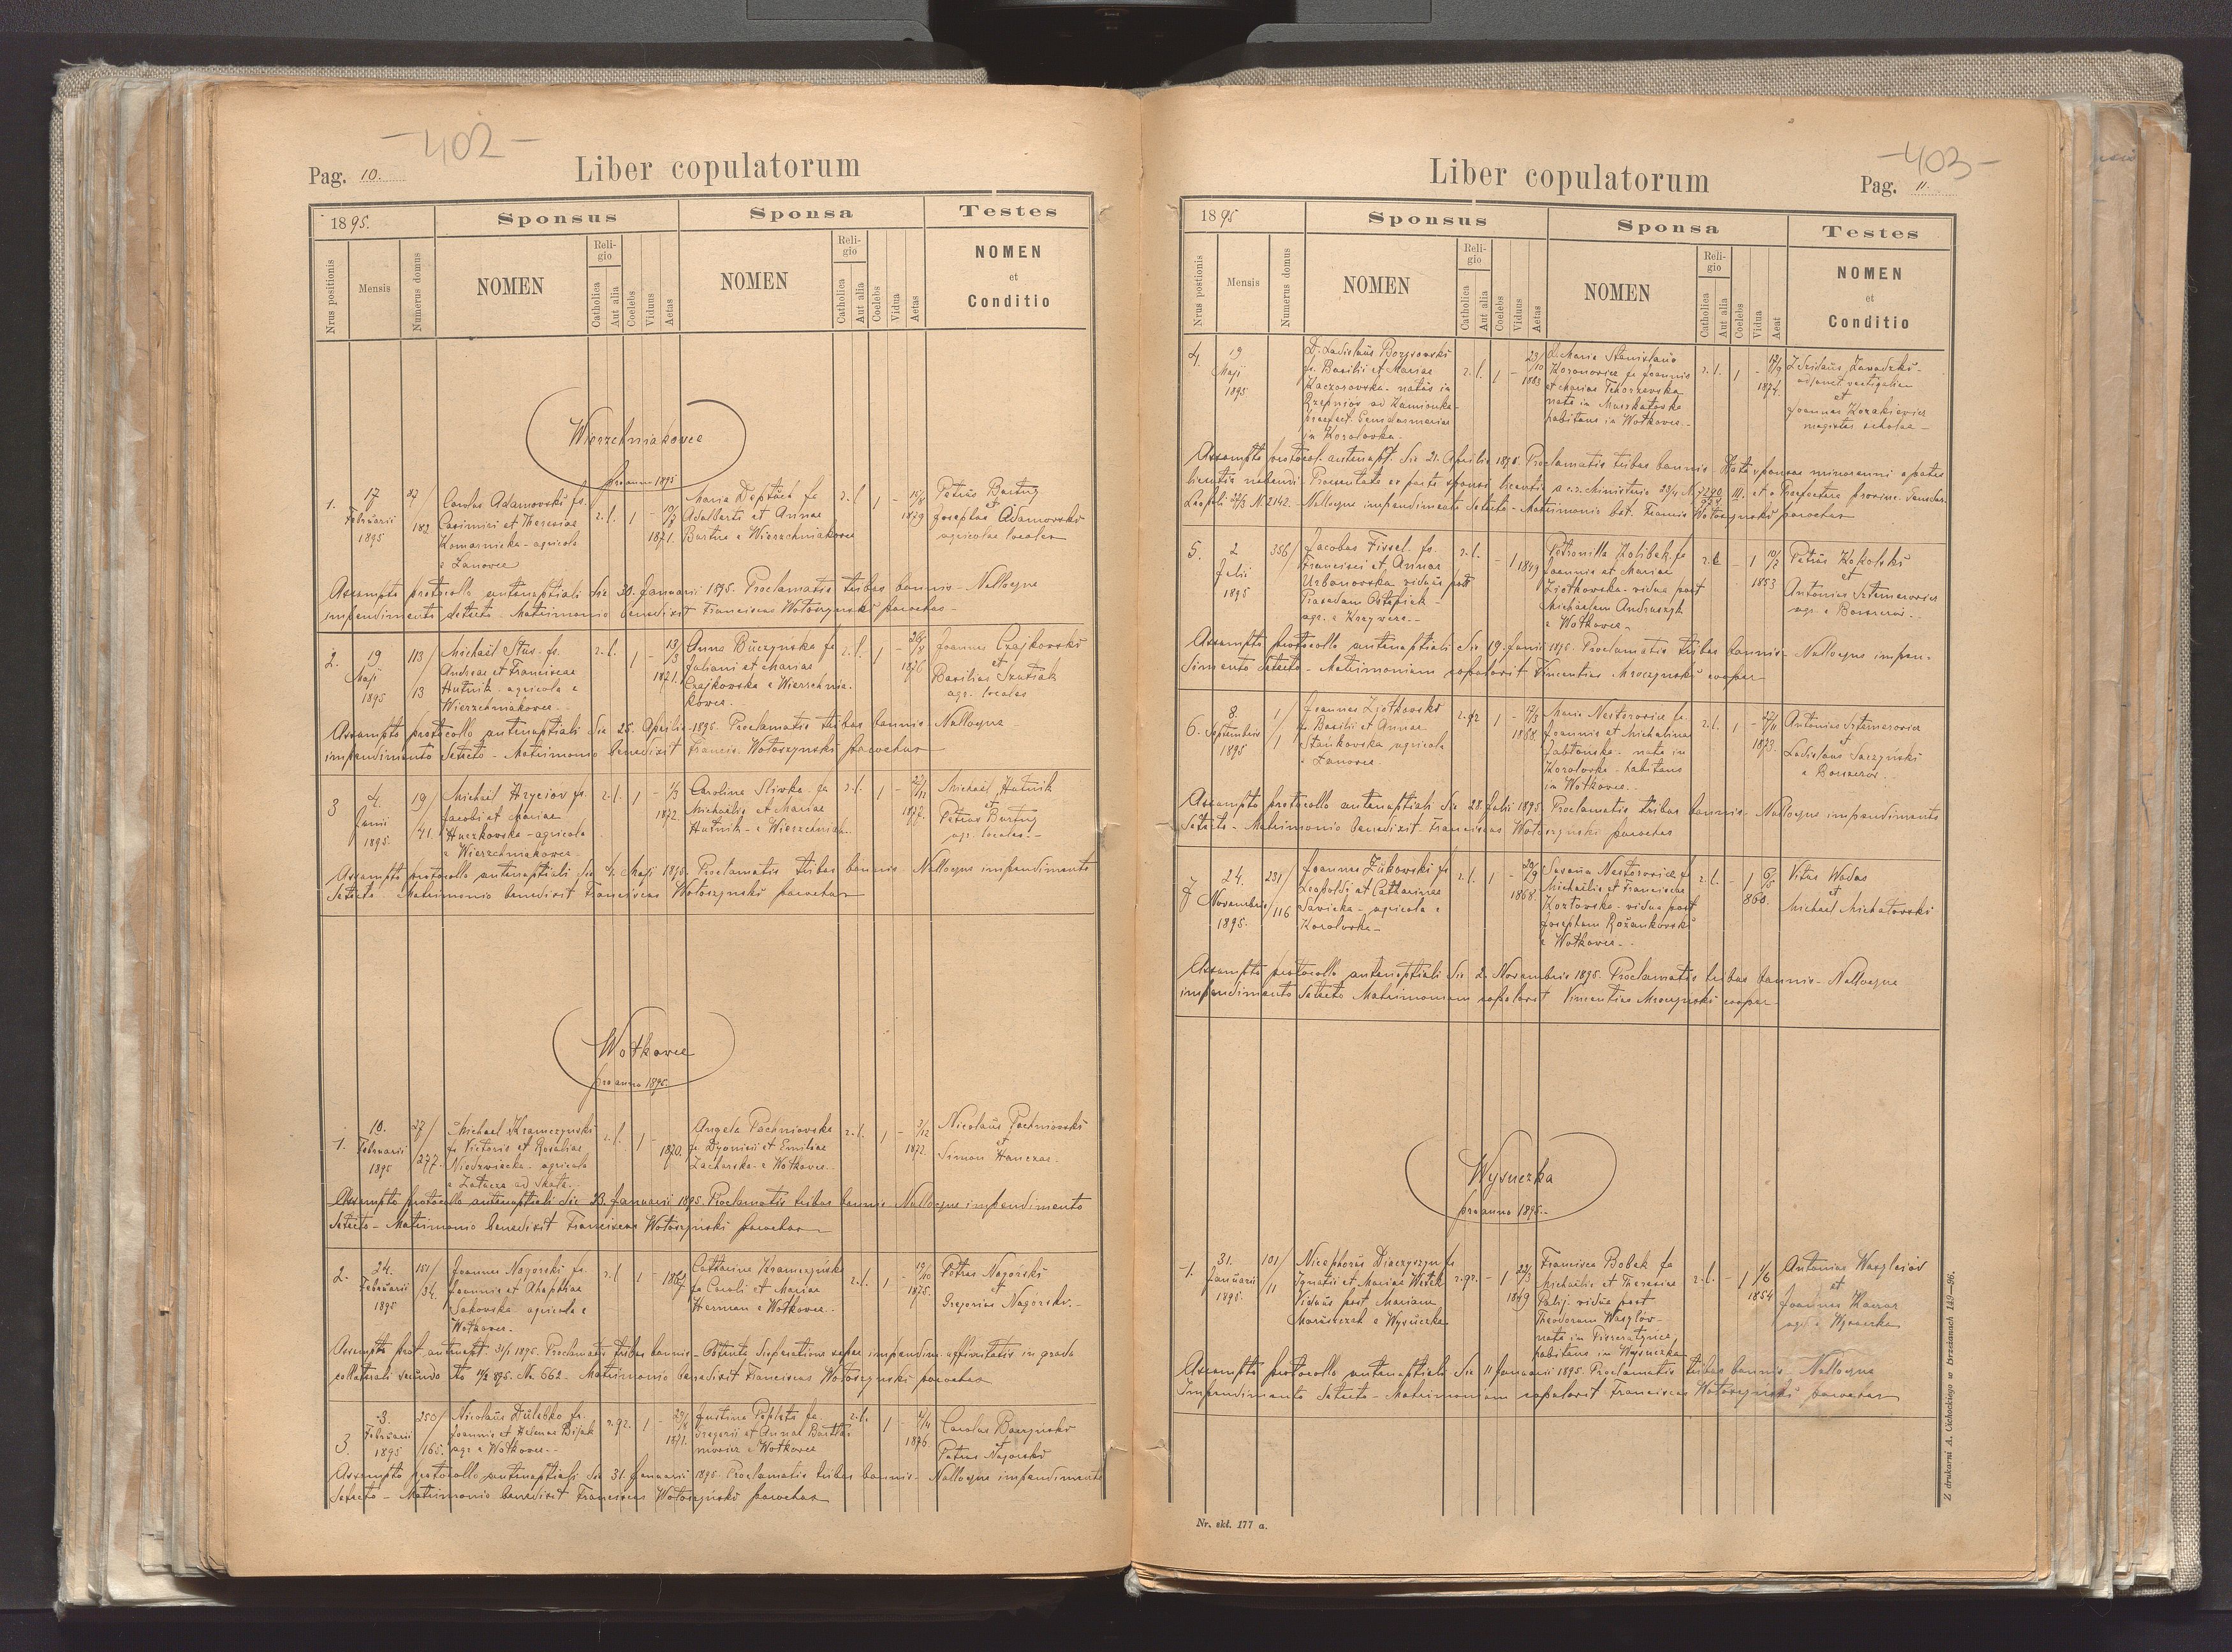 -402-
Pag. 10.
Liber copulatorum
1895.
Sponsus
Sponsa
Testes
Nrus positionis
Mensis
Numerus domus
NOMEN
Religio
Catholica
Aut alia
Coelebs
Viduus
Aetas
NOMEN
Religio
Catholica
Aut alia
Coelebs
Vidua
Aetas
NOMEN
et
Conditio
Wierzchniakowce
pro anno 1895
1.
17
Februarii
1895
27/
182
Carolus Adamowski fs.
Casimiri et Theresiae
Komarnicka - agricola
e Łanowce
r. l. 1 -
1871.
Maria Deptuch fa
Adalberti et Annae
Bartus e Wierzchniakowce
r. l. 1 -
1879
Petrus Bartuy
et
Josephus Adamowski
agricolae locales
Assumpto protocollo antenuptiali die 30. Januarii 1895. Proclamatis tribus bannis - Nulloque
impendimento detecto - Matrimonio benedixit Franciscus Wołoszynski parochus -
2.
19
Maji
1895
113/
13
Michaël Stus. fs.
Andreae et Franciscae
Hutnik - agricola e
Wierzchniakowce -
r. l. 1 -
13/3
1871.
Anna Buczyńska fa
Juliani et Mariae
Czajkowska e Wierzchnia-
kowce.
r. l. 1 -
1876
Joannes Czajkowski
et
Basilius Szutiak
agr. locales
Assumpto protocollo antenuptiali die 25. Aprilis 1895. Proclamatis tribus bannis - Nulloque
impendimento detecto - Matrimonio benedixit Francis. Wołoszynski parochus
3
4.
Junii
1895.
19/
41.
Michaël Hryciow fs.
Jacobi et Mariae
Huczkowska - agricola
e Wierzchniakowce
r. l. 1 -
1872.
Carolina Sliwka fa
Michaëlis et Mariae
Hutnik - e Wierzchniak.
r. l. 1 -
1877.
Michaël Hutnik
et
Petrus Bartuy
agr. locales. -
Assumpto protocollo antenuptiali die 4. Maji 1895. Proclamatis tribus bannis - Nulloque impendimento
detecto - Matrimonio benedixit Franciscus Wołoszynski parochus
Wołkowce
pro anno 1895.
1.
10.
Februarii
1895
27/
277.
Michael Kramczynski
fs Victoris et Rosaliae
Niedzwiecka - agricola
e Zalucze ad Skala.
r. l. 1 -
1870.
Angela Pachniowska
fa Dyonisii et Emiliae
Zacharska e Wołkowce.
r. l. 1 -
3/12
1872.
Nicolaus Pachniowski
et
Simon Hanczar.
Assumpto protocollo antenuptiali die 23. Januarii 1895. Proclamatis tribus bannis - Nulloque impendimento
detecto - Matrimonio benedixit Franciscus Wołoszynski parochus
2.
24.
Februarii
1895
151/
34.
Joannes Nagorski fs.
Joannis et Ahaphiae
Sakowska agricola e
Wołkowce.
r. l. 1 -
Catharina Kramczynska
fa Caroli et Mariae
Herman e Wołkowce.
r. l. 1 -
1875.
Petrus Nagorski
et
Gregorius Nagorski. -
Assumpto prot. antenupt. 31/1 1895. Proclamatis tribus bannis - Obtenta dispensatione super impendim. affinitatis in gradu
collaterali secundo dto 895. No 662 - Matrimonio benedixit Franciscus Wołoszynski parochus
3.
3.
Februarii
1895
250/
165.
Nicolaus Dulebko fs.
Joannis et Helenae Bijak
agr. e Wołkowce. -
r. gr. 1 -
1871.
Justina Popleta fa
Gregorii et Annae Bartłoi
mowicz e Wołkowce
r. l. 1 -
1876.
Carolus Boczynski
et
Petrus Nagorski
Assumpto protocollo antenuptiali die 31. Januarii 1895. Proclamatis tribus bannis - Nulloque impendimento
detecto - Matrimonio benedixit Franciscus Wołoszynski parochus
-403-
Liber copulatorum
Pag. 11.
1895
Sponsus
Sponsa
Testes
Nrus postionis
Mensis
Numerus domus
NOMEN
Religio
Catholica
Aut alia
Coelebs
Viduus
Aetas
NOMEN
Religio
Catholica
Aut alia
Coelebs
Vidua
Aeat
NOMEN
et
Conditio
4.
19
Maji
1895
D. Ladislaus Borysowski
fs. Basilii et Mariae
Kaczorowska - natus in
Rzepniów ad Kamionka
praefect. Gendarmeriae
in Korolowka -
r. l. 1 -
23/10
1863
D. Maria Stanislava
Koronowicz fa Joannis
et Mariae Tchorzewska
nata in Muszkatowka
habitans in Wołkowce. -
r. l. 1 -
1874.
Zdzislaus Zawadzki -
adjunct vectigalium
et
Joannes Kozakiewicz
magister scholae -
Assumpto protocol. antenupt. die 21. Aprilis 1895. Proclamatis tribus bannis -
licentia nubendi - Praesentata ex parte sponsi licentia a c. r. Ministerio
Leopoli No 2142. - Nulloque impendimento detecto - Matrimonio bdt. Francis Wołoszynski parochus
5.
2
Julii
1895
356/
Jacobus Fissel. fs.
Francisci et Annae
Urbanowska viduus post
Ostapiak -
agr. e Krzywcze. -
r. l. - 1 1849
Petronilla Kolibek fa
Joannis et Mariae
Ziołkowska - vidua post
Michaëlem Andruszyk
e Wołkowce -
r. l. - 1
10/7
1853
Petrus Kokolski
et
Antonius Sztemerowicz
agr. e Borszczów. -
Assumpto protocollo antenuptiali die 19. Junii 1895. Proclamatis tribus bannis - Nulloque impen-
dimento detecto - Matrimonium copulavit Vincentius Mroczynski cooper -
6.
8.
Septembris
1895
1/
1
Joannes Ziołkowski
fs Basilii et Annae
Stankowska agricola
e Łanowce.
r. gr 1 -
1868.
Maria Nestorowicz fa
Joannis et Michalina
Jabłonska - nata in
Korolowka - habitans
in Wołkowce. -
r. l. 1 -
1873.
Antonius Sztemerowicz
et
Ladislaus Saczynski
e Borszczów. -
Assumpto protocollo antenuptiali die 28. Julii 1895. Proclamatis tribus bannis - Nulloque impendimento
detecto - Matrimonio benedixit Franciscus Wołoszynski parochus
7
24.
Novembris
1895.
231/
116
Joannes Zukowski fs
Leopoldi et Catharinae
Sawicka - agricola e
Korolowka -
r. l. 1 -
20/9
1868.
Susanna Nestorowicz fa
Michaëlis et Franciscae
Kozłowska - vidua post
Josephum Rożankowski
e Wołkowce. -
r. l. - 1
6/5
860.
Vitus Wodas
et
Michael Michałowski
Assumpto protocollo antenuptiali die 2. Novembris 1895. Proclamatis tribus bannis - Nulloque
impendimento detecto Matrimonium copulavit Vincentius Mroczynski cooper -
Wysuczka
pro anno 1895. -
1.
31.
Januarii
1895.
101/
11
Nicephorus Diaczyszyn fs
Ignatii et Mariae Witek
Viduus post Mariam
e Wysuczka
r. gr. - 1
1849
Francisca Bobek fa
Michaëlis et Theresiae
Palij. vidua post
Theodorum Wasylów -
nata in Piszczatynce
habitans in Wysuczka
r. l. - 1
1/6
1854
Antonius Wasylciow
et
Joannes Kaczor
agr. e Wysuczka
Assumpto protocollo antenuptiali die 11 Januarii 1895. Proclamatis tribus bannis. Nulloque
Impendimento detecto - Matrimonium copulavit Franciscus Wołoszynski parochus
Nr. skł. 177 a.
Z drukarni A. Cichockiego w Brzeżanach 149—96.